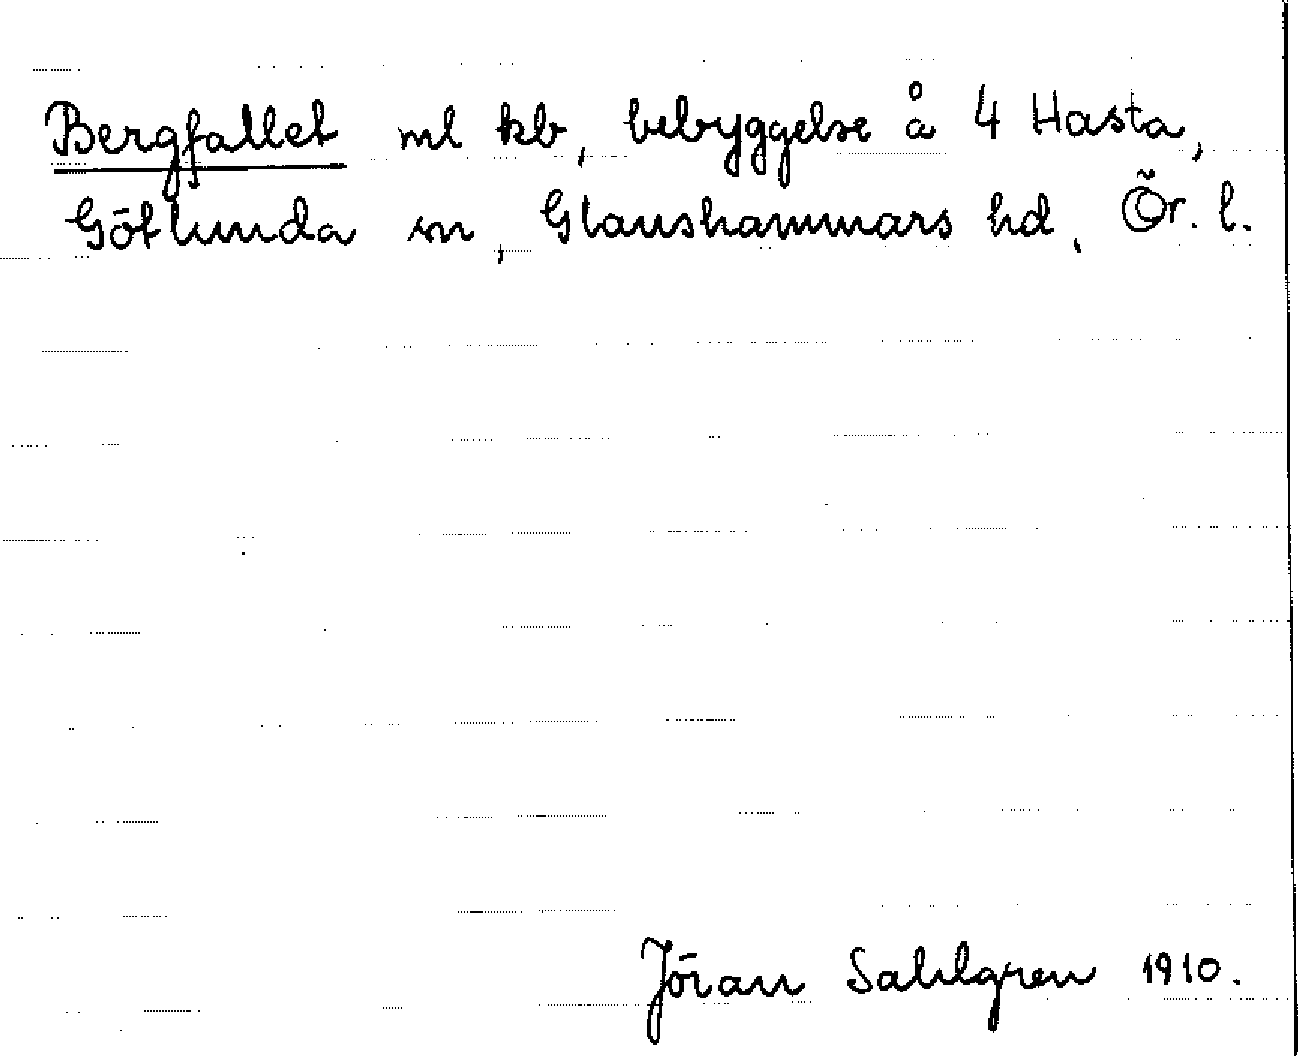 Bergfallet ml kb, bebyggelse å 4 Hasta,
Götlunda sn, Glanshammars hd, Ör. l.
Jöran Sahlgren 1910.